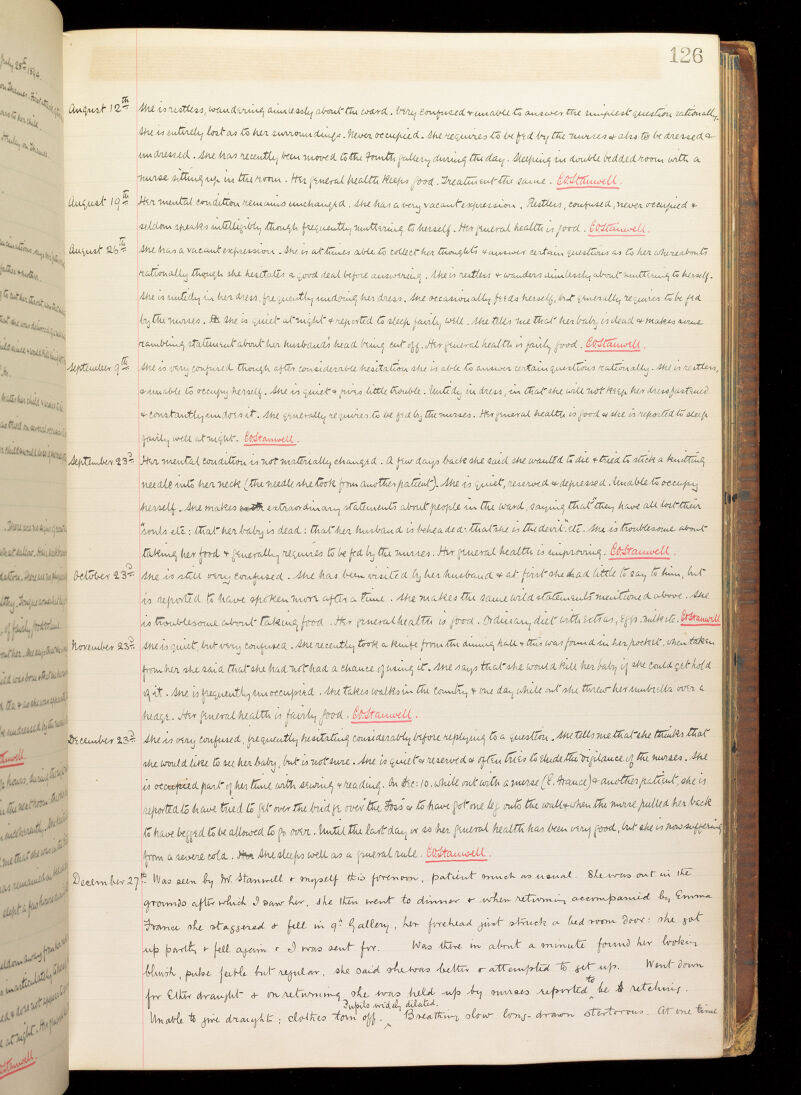 126
August 12th She is restless, wandering aimlessly about the ward. Very confused & unable to answer the simplest question rationally.
She is entirely lost as to her surroundings. Never occupied. She requires to be fed by the nurses & also to be dressed &
undressed. She has recently been moved to the Fourth gallery during the day. Sleeping in double bedded room with a
nurse sitting up in the room. Her general health keeps good. Treatment the same. C.O. Stanwell.
August 19th Her mental condition remains unchanged. She has a very vacant expression. Restless, confused, never occupied &
seldom speaks intelligibly though frequently muttering to herself. Her general health is good. C.O. Stanwell.
August 26th She has a vacant expression. She is at times able to collect her thoughts & answer certain questions as to her whereabouts
rationally though she hesitates a good deal before answering. She is restless & wanders aimlessly about muttering to herself.
She is untidy in her dress, frequently undoing her dress. She occasionally feeds herself, but generally requires to be fed
by the nurses. She is quiet at night & reported to sleep fairly well. She tells me that her baby is dead & makes some
rambling statement about her husband's head being cut off. Her general health is fairly good. C.O. Stanwell.
September 9th She is very confused though after considerable hesitation she is able to answer certain questions rationally. She is restless,
& unable to occupy herself. She is quiet & gives little trouble. Untidy in dress, in that she will not keep her dress fastened
& constantly undoes it. She generally requires to be fed by the nurses. Her general health is good & she is reported to sleep
fairly well at night. C.O. Stanwell.
September 23rd Her mental condition is not materially changed. A few days back she said she wanted to die & tried to stick a knitting
needle into her neck (the needle she took from another patient). She is quiet, reserved & depressed. Unable to occupy
herself. She makes extraordinary statements about people in the ward, saying that "they have all lost their
"souls etc: that her baby is dead: that her husband is beheaded: that she is the devil" etc. She is troublesome about
taking her food & generally requires to be fed by the nurses. Her general health is improving. C.O. Stanwell.
October 23rd She is still very confused. She has been visited by her husband & at first she had little to say to him, but
is reported to have spoken more after a time. She makes the same wild statements mentioned above. She
is troublesome about taking food. Her general health is good. Ordinary diet with extras, Eggs. milk etc. C.O. Stanwell
November 23rd She is quiet, but very confused. She recently took a knife from the dining hall & this was found in her pocket, when taken
from her she said that she had not had a chance of using it. She says that she would kill her baby if she could get hold
of it. She is frequently unoccupied. She takes walks in the country & one day while out she threw her umbrella over a
hedge. Her general health is fairly good. C.O. Stanwell.
December 23rd She is very confused, frequently hesitating considerably before replying to a question. She tells me that she thinks that
she would like to see her baby, but is not sure. She is quiet & reserved & often tries to elude the vigilance of the nurses. She
is occupied part of her time with sewing & reading. On Dec: 10. while out with a nurse (E. France) & another patient, she is
reported to have tried to get over the bridge over the Foss & to have got one leg onto the wall & when the nurse pulled her back
to have begged to be allowed to go over. Until the last day or so her general health has been very good, but she is now suffering
from a severe cold. She sleeps well as a general rule. C.O. Stanwell.
December 27th Was seen by Mr. Stanwell & myself this forenoon, patient much as usual. She was out in the
grounds after which I saw her, she then went to dinner & when returning accompanied by Emma
France she staggered & fell in 9th Gallery, her forehead just struck a bed room door: she got
up partly & fell again & I was sent for. Was there in about a minute found her looking
bluish, pulse feeble but regular, she said she was better & attempted to get up. Went down
for Ether draught & on returning she was held up by nurses reported to be retching.
Unable to give draught; clothes torn off. Pupils widely dilated. Breathing slow long-drawn stertorous. At one time